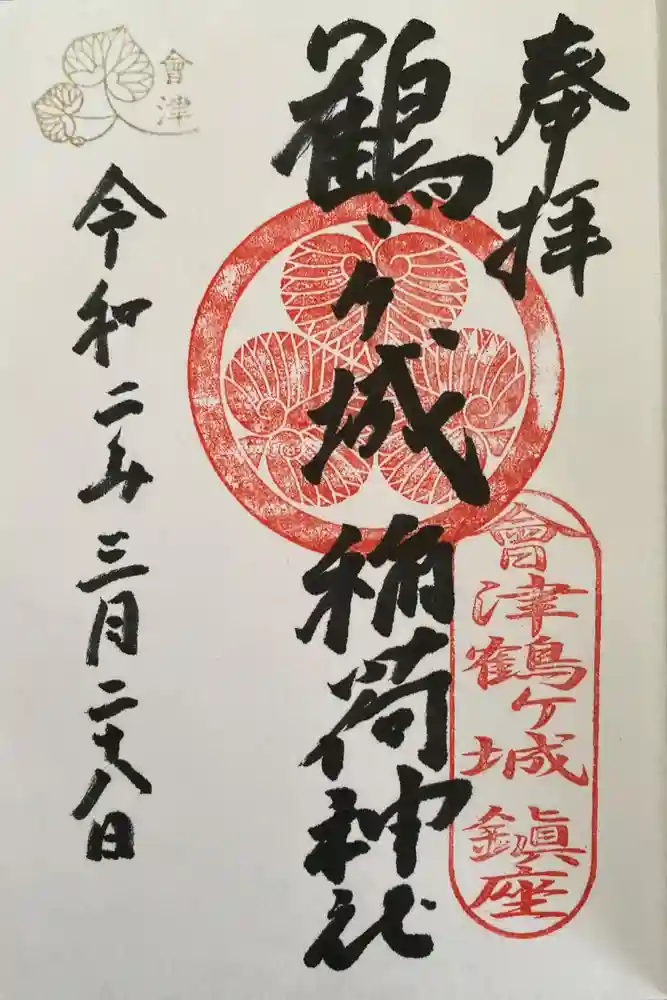 奉拝
鶴ヶ城稲荷神社
會津鶴ケ城鎮座
令和二年三月二十八日
會津